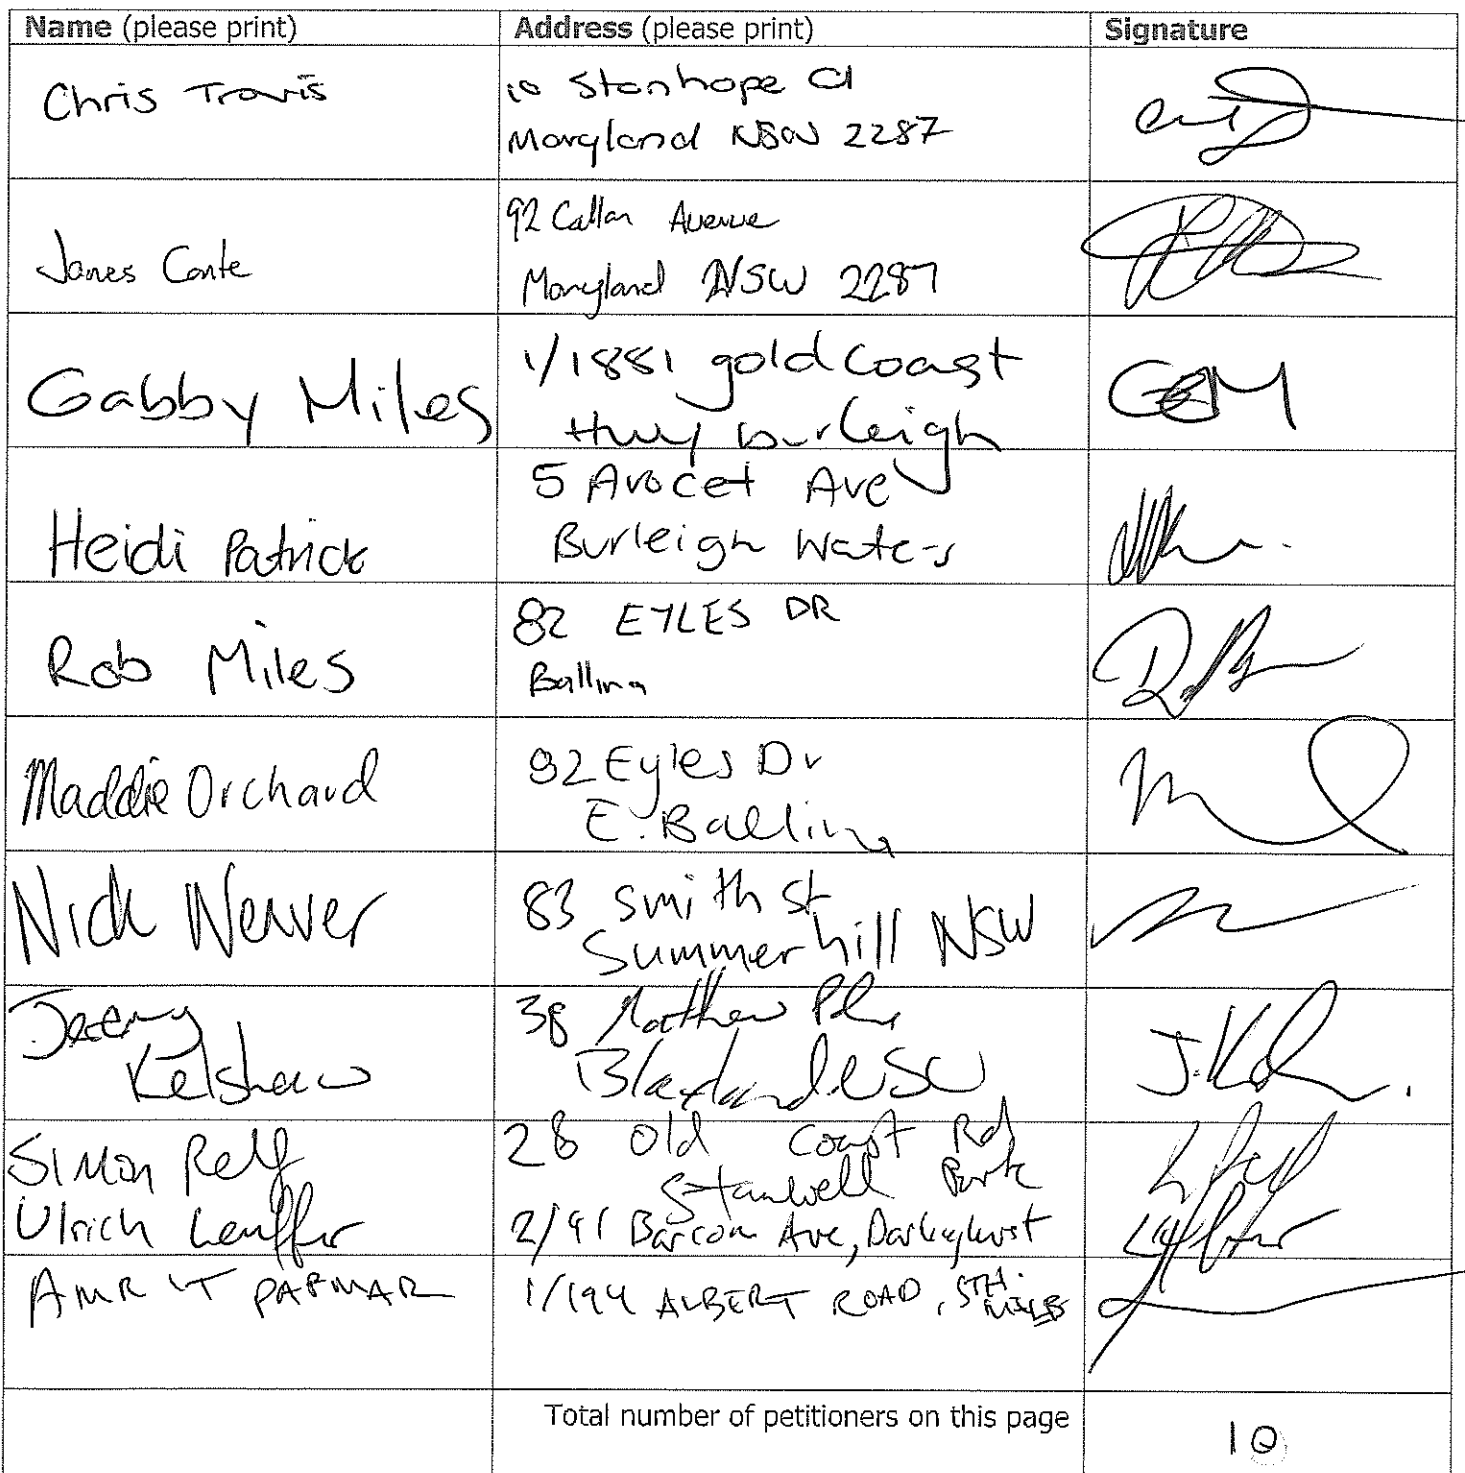 Name (please print) Address (please print) Signature
Chris Travis
10 Stanhope Cl
Maryland NSW 2287
James Conte
92 Callan Avenue
Maryland NSW 2287
Gabby Miles
1/1881 gold coast
Hwy burleigh
GEM
Heidi Patrick
5 Avocet Ave
Burleigh Waters
Rob Miles
82 EYLES DR
Ballina
Maddie Orchard
82 Eyles Dr
E. Ballina
Nick Weaver
83 Smith St
Summer hill NSW
Jeremy
Kelshaw
38 Matthew
Blaxland NSW
Simon Relf
28 Old Coast Rd
Stanwell Park
Ulrich
2/91 Barcom Ave, Darlinghurst
AMRIT PARMAR
1/194 ALBERT ROAD, STH. MELB
Total number of petitioners on this page
10